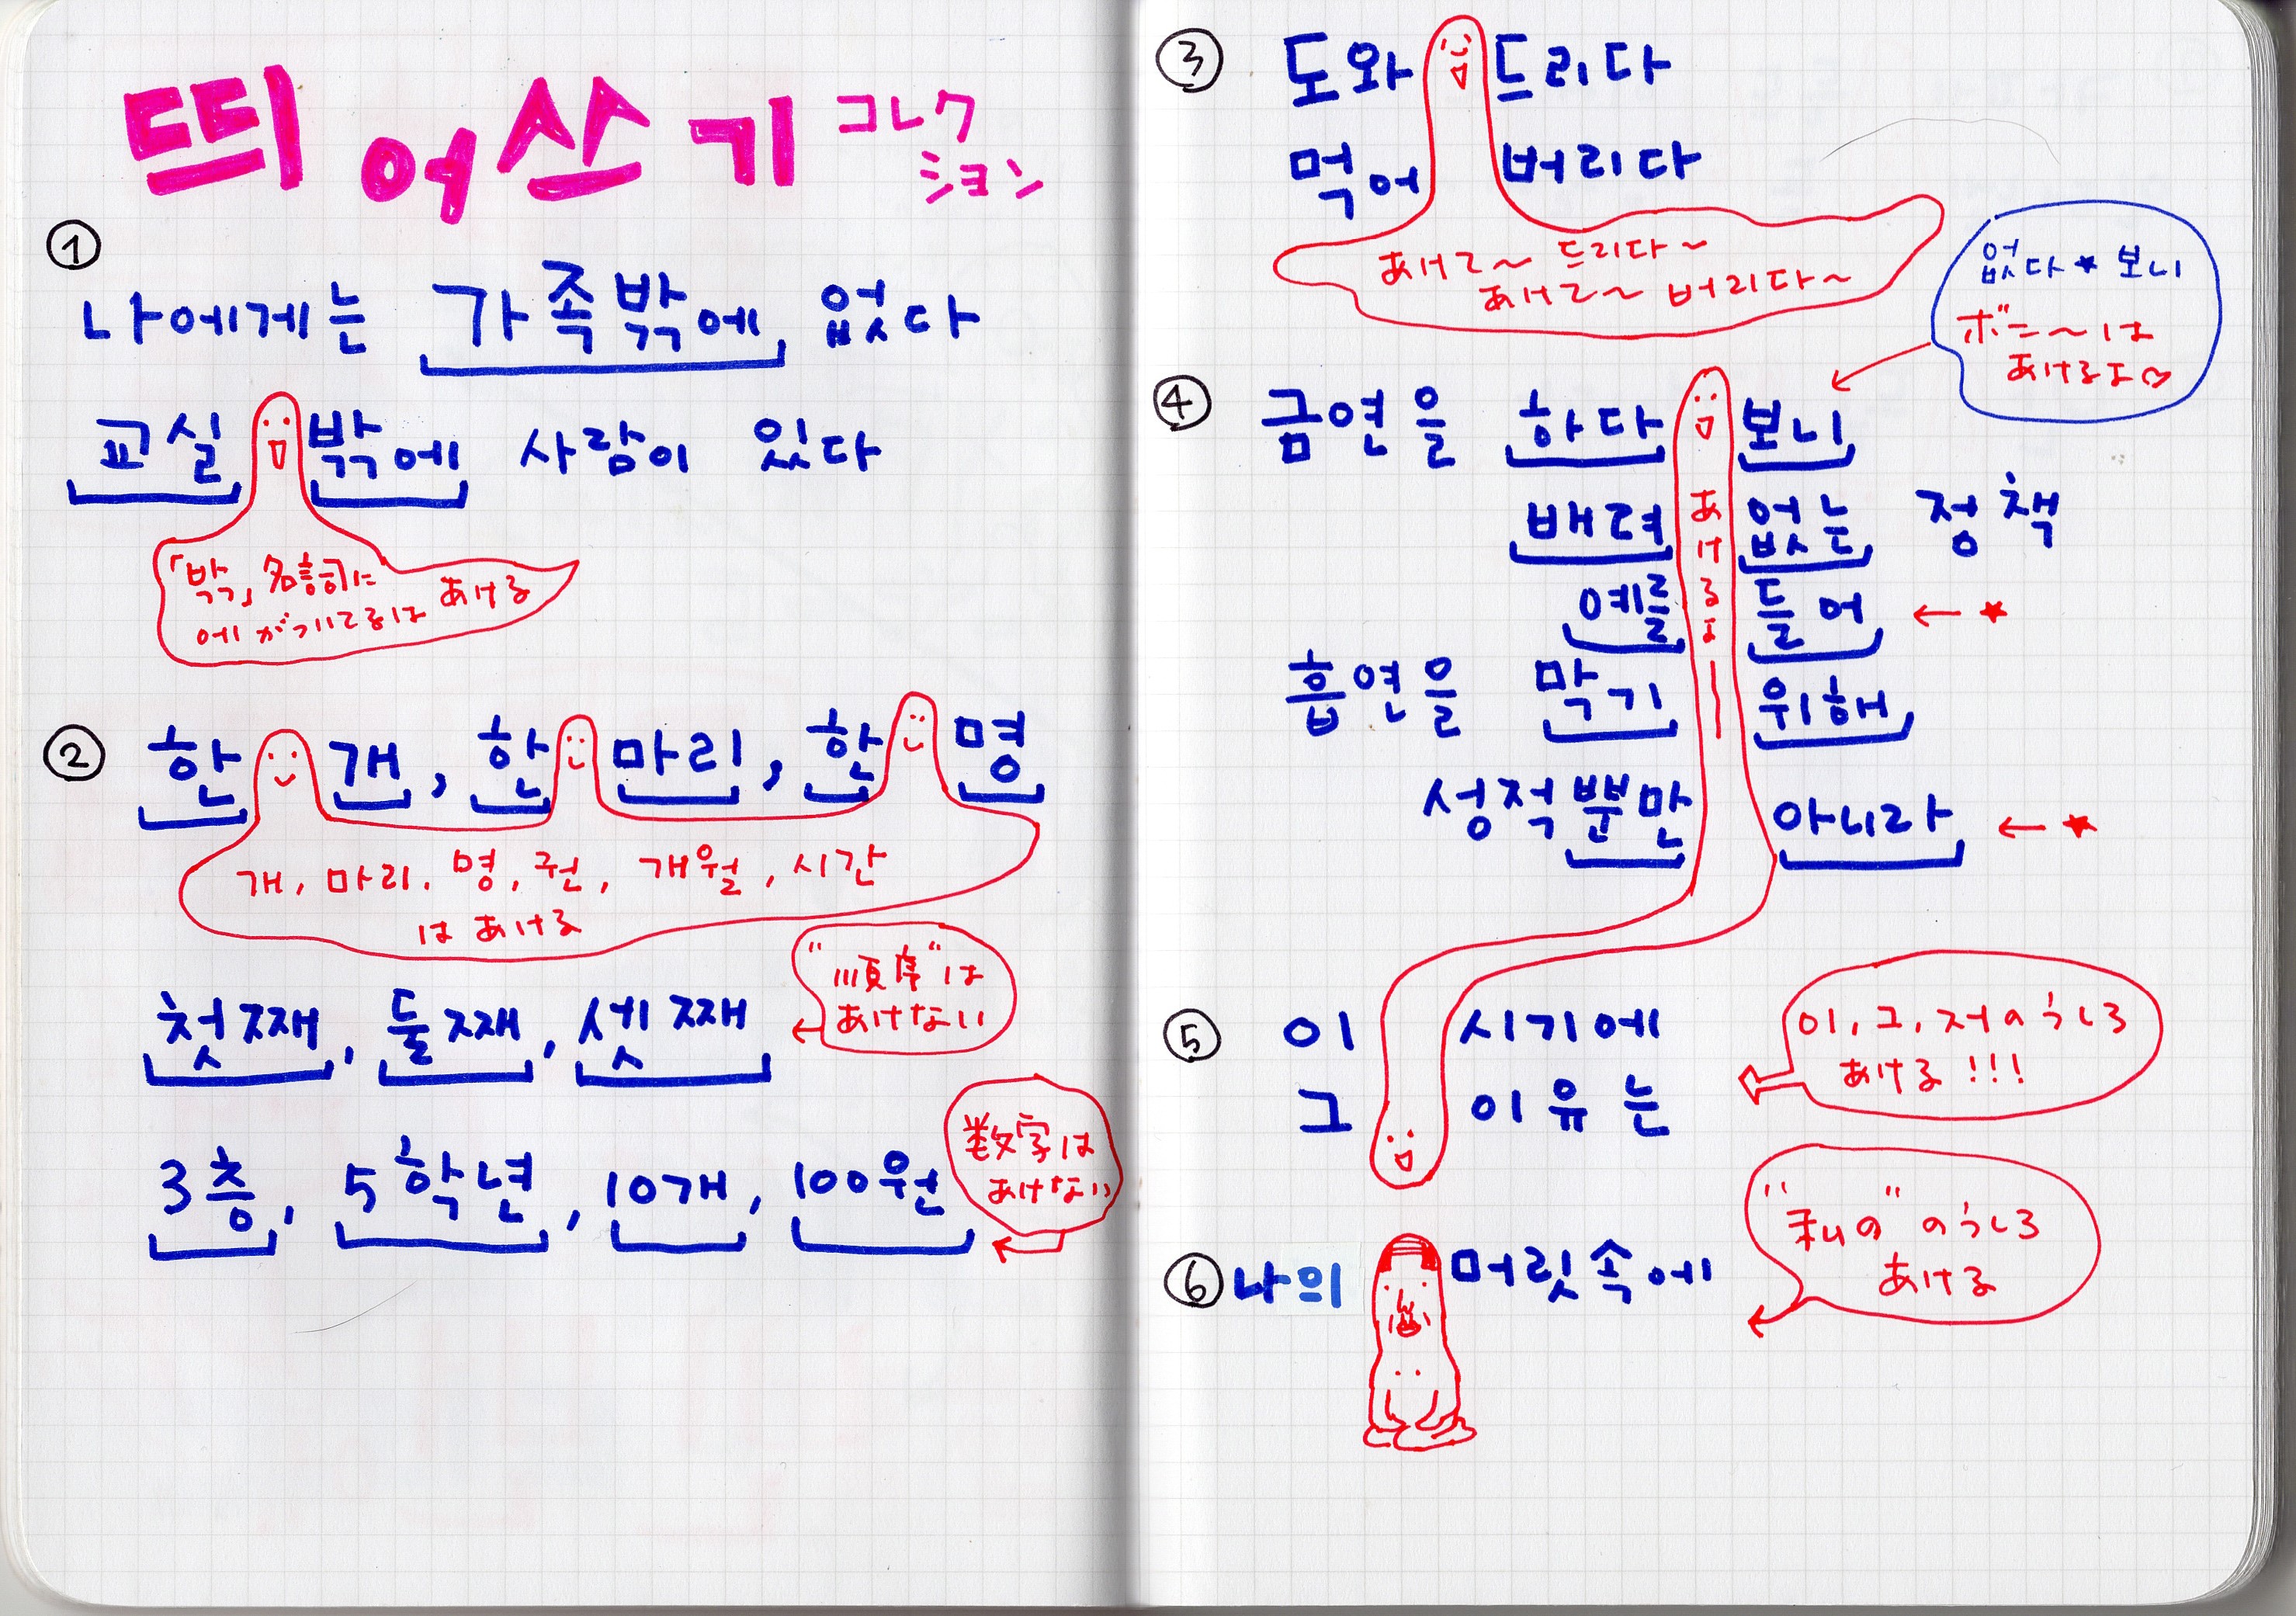 띄어쓰기 コレク
ション
①
나에게는 가족밖에 없다
교실 밖에 사람이 있다
「밖」名詞に
에がついてるはあける
② 한 개, 한 마리, 한 명
개, 마리, 명, 권, 개월, 시간
はあける
"順序"は
あけない
첫째, 둘째, 셋째
数字は
あけない
3층, 5학년, 10개, 100원
③ 도와 드리다
먹어 버리다
あけて〜 드리다〜
あけて〜 버리다〜
없다★보니
ボニ〜は
あけるよ♡
④ 금연을 하다 보니
배려 없는 정책
예를 들어 ←★
흡연을 막기 위해
성적뿐만 아니라 ←★
あけるよー
⑤ 이 시기에
그 이유는
이, 그, 저のうしろ
あける!!!
⑥ 나의 머릿속에
"私の"のうしろ
あける